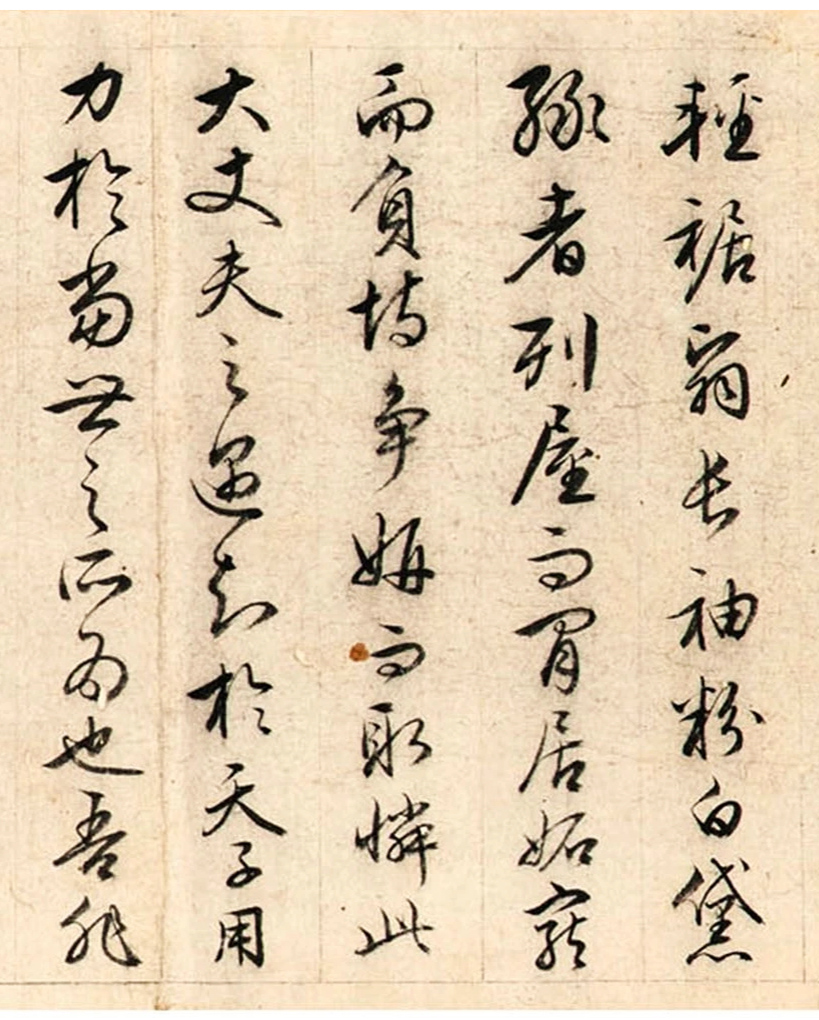 輕裾翳長袖粉白黛
緑者列屋而閒居妬寵
而負恃争妍而取憐此
大丈夫之遇知於天子用
力於當世之所為也吾非